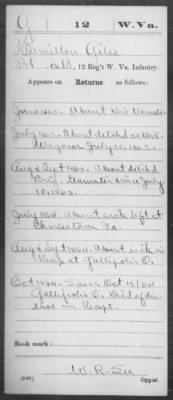 G | 12 | W. Va.
Hamilton Giles
Pvt., Co. B, 12 Reg't W. Va. Infantry.
Appears on Returns as follows:
June 1863. Absent Div Teamster
July 1863. Absent detchd as Div.
Wagoner July 10, 1863.
Aug & Sept 1863. Absent detchd
Brig. Teamster since July
10, 1863
July 1864. Absent sick left at
Charlestown Va.
Aug & Sept 1864. Absent sick in
Hosp at Gallipolis O.
Oct 1864. Oct 12/64
Gallipolis O. Died of dis-
ease in Hospt.
Book mark:
W. R. See
(546) Copyist.